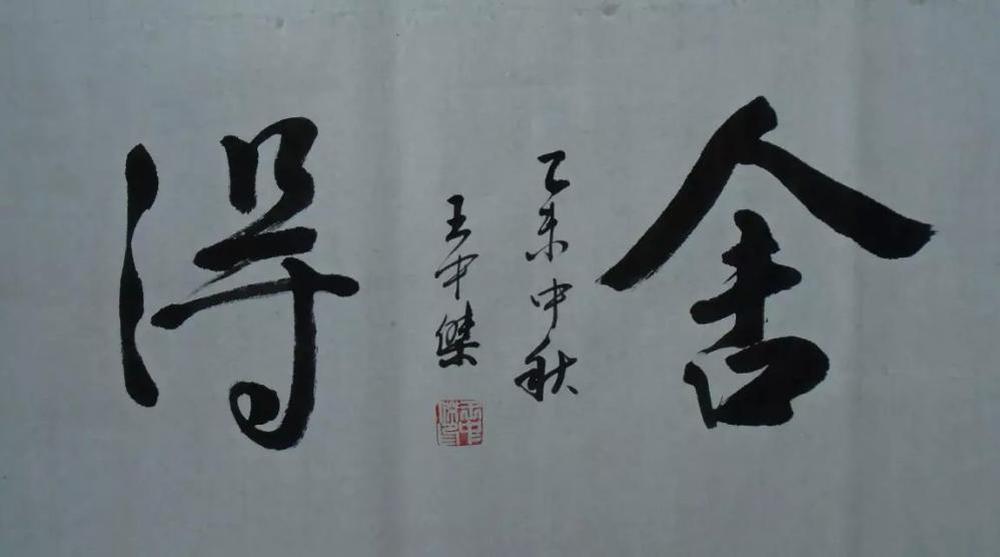 舍得
乙未中秋
王中傑